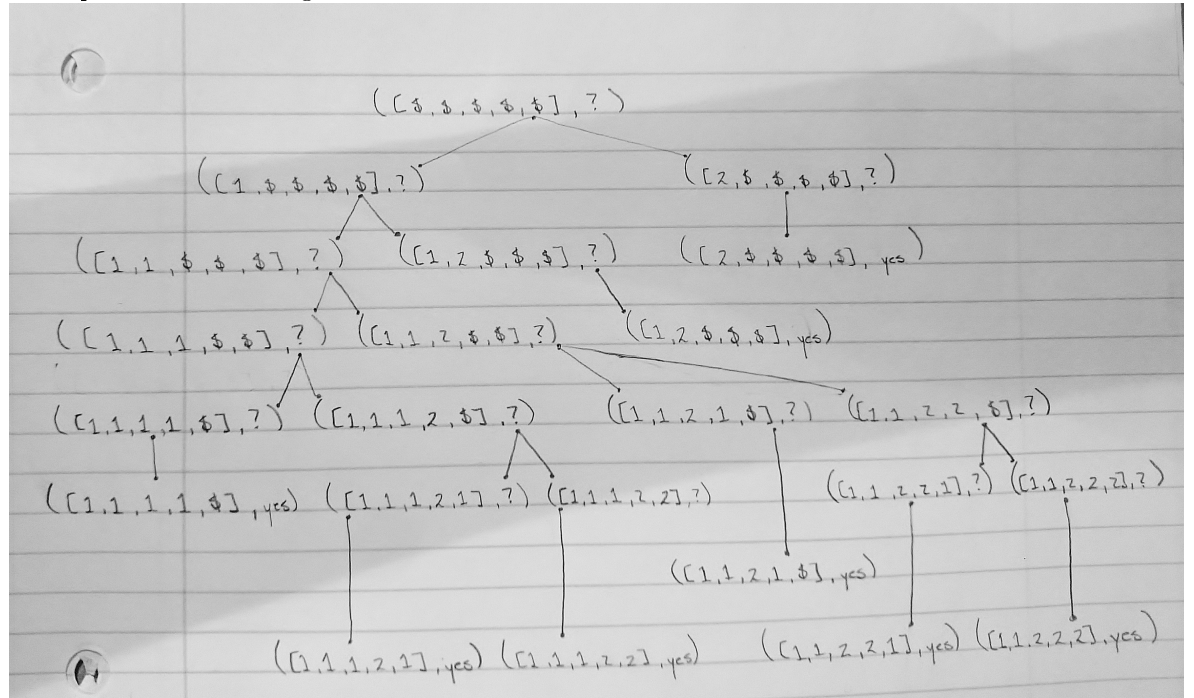 ([$, $, $, $, $], ?)
([1, $, $, $, $], ?) ([2, $, $, $, $], ?)
([1, 1, $, $, $], ?) ([1, 2, $, $, $], ?) ([2, $, $, $, $], yes)
([1, 1, 1, $, $], ?) ([1, 1, 2, $, $], ?) ([1, 2, $, $, $], yes)
([1, 1, 1, 1, $], ?) ([1, 1, 1, 2, $], ?) ([1, 1, 2, 1, $], ?) ([1, 1, 2, 2, $], ?)
([1, 1, 1, 1, $], yes) ([1, 1, 1, 2, 1], ?) ([1, 1, 1, 2, 2], ?) ([1, 1, 2, 2, 1], ?) ([1, 1, 2, 2, 2], ?)
([1, 1, 2, 1, $], yes)
([1, 1, 1, 2, 1], yes) ([1, 1, 1, 2, 2], yes) ([1, 1, 2, 2, 1], yes) ([1, 1, 2, 2, 2], yes)